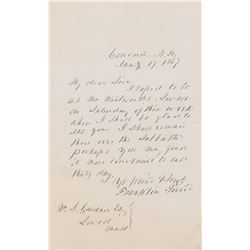 Concord, N.H.
Jany 17, 1867
My dear Sir
I expect to be
at Mr Wentworths, Lowell
on Saturday of this week
when I shall be glad to
see you. I shall remain
there over the Sabbath &
perhaps you may find
it more convenient to call
that day.
Yr friend & Servt
Franklin Pierce
Wm. S. Gardner Esq.
Lowell
Mass